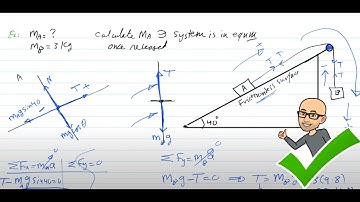 Ex: mA = ? calculate mA ∋ system is in equm
mB = 3 kg once released
A N T x
mAg sin40
mAg cosθ
T
mBg
x
T T
A
Frictionless surface
40°
T
B
ΣFx = mAa⁰ ΣFy = 0
T - mAg sin40 = 0
ΣFy = mBa⁰
mBg - T = 0 ⇒ T = mBg
3(9.8)